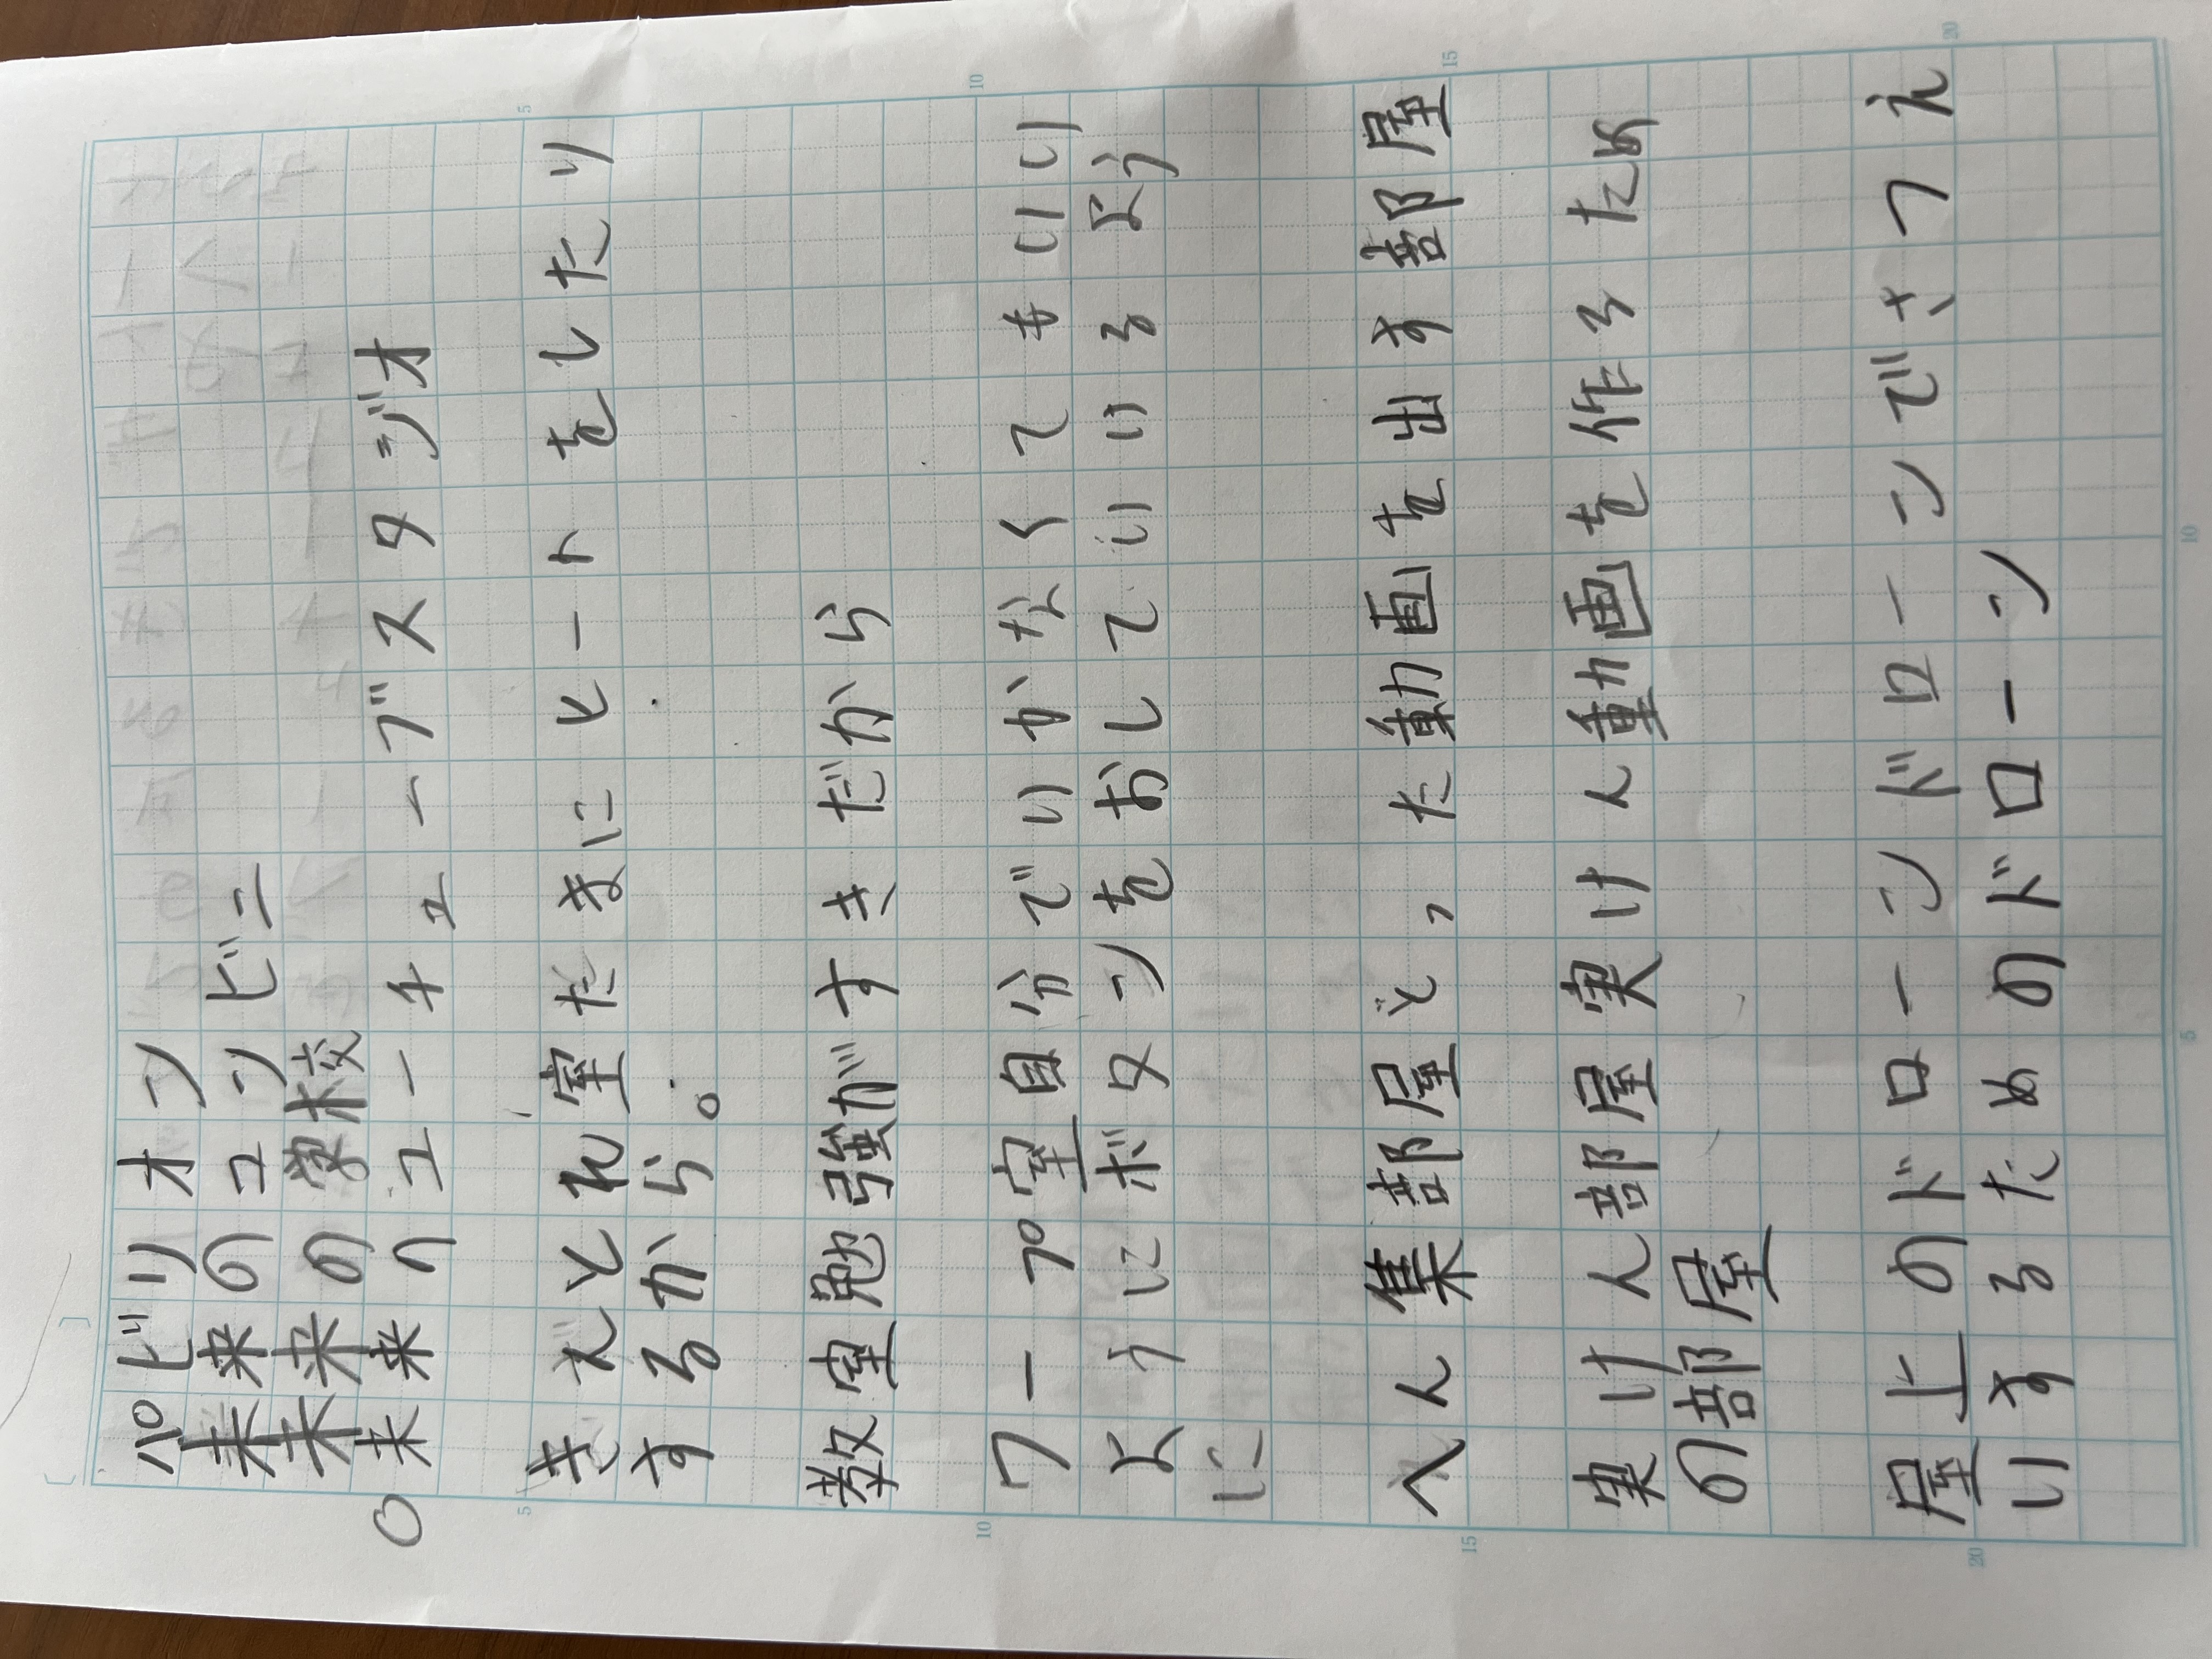 パビリオン
未来のコンビニ
未来の学校
○未来のユーチューブスタジオ
きえとれ室たまにヒートをしたり
するから。
教室勉強がすきだから
ワープ室自分でいかなくてもいい
ようにボタンをおしていけるよう
に
へん集部屋とった動画を出す部屋
実けん部屋実けん動画を作るため
の部屋
屋上のドローンドローンでさつえ
いするためのドローン